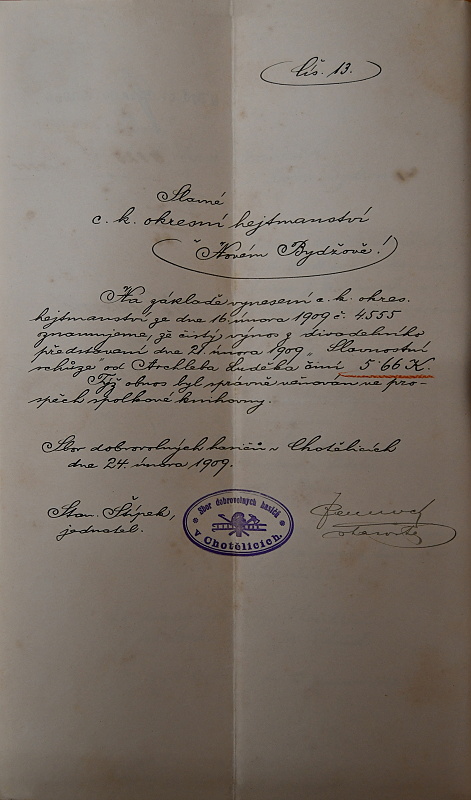 Čís. 13.
Slavné
c. k. okresní hejtmanství
v Novém Bydžově!
Na základě vynesení c. k. okres.
hejtmanství ze dne 16. února 1909 č. 4555
oznamujeme, že čistý výnos z divadelního
představení dne 21. února 1909 „Slavnostní
schůze od Archleba Luděka činí 5·66 K.
Týž obnos byl správně věnován ve pro-
spěch spolkové knihovny.
Sbor dobrovolných hasičů v Chotělicích
dne 24. února 1909.
Stan. Štípek,
jednatel.
Sbor dobrovolných hasičů
v Chotělicích.
starosta